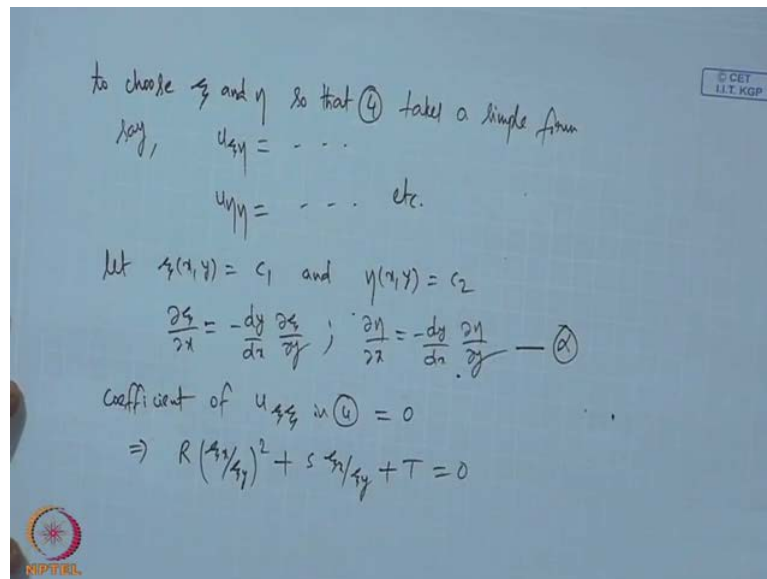 © CET
I.I.T. KGP
to choose ξ and η so that ④ takes a simple form
say, u_ξη = - - - -
u_ηη = - - - - etc.
let ξ(x,y) = c₁ and η(x,y) = c₂
∂ξ/∂x = -dy/dx ∂ξ/∂y ; ∂η/∂x = -dy/dx ∂η/∂y — ⓐ
coefficient of u_ξξ in ④ = 0
⇒ R (ξx/ξy)² + S ξx/ξy + T = 0
NPTEL